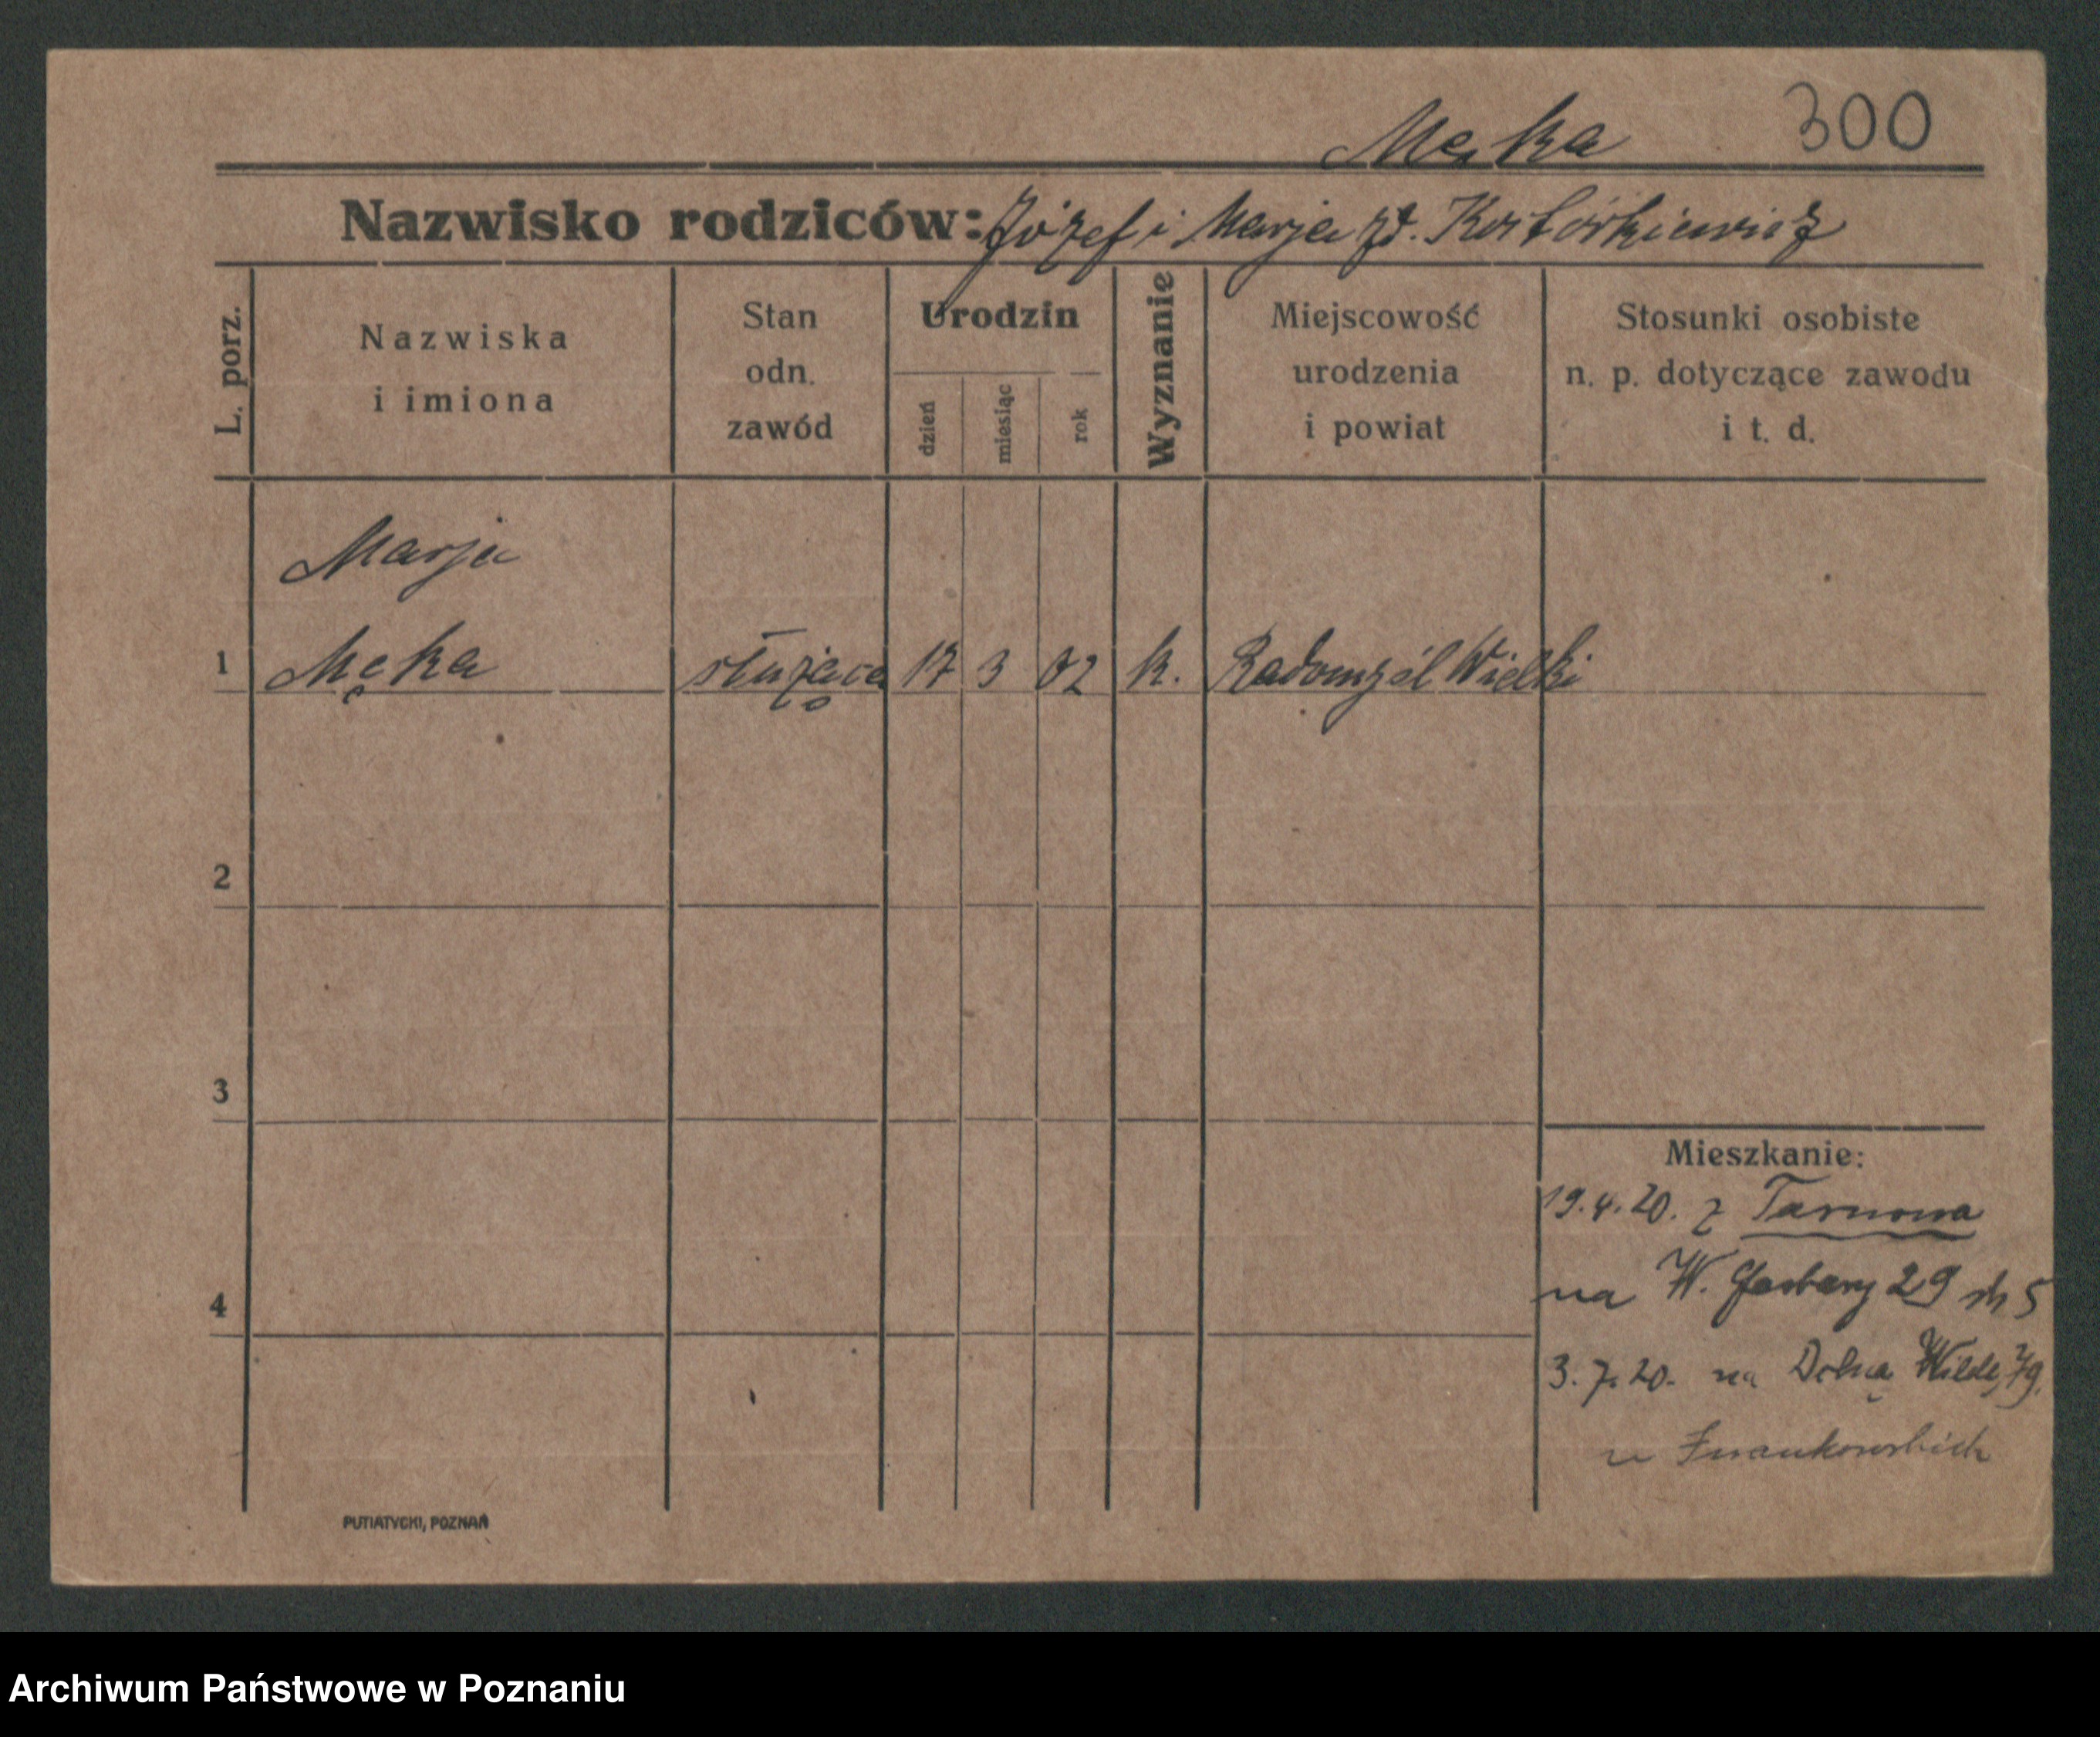 Męka 300
Nazwisko rodziców: Józef i Marja zd.
L. porz.
Nazwiska
i imiona
Stan
odn.
zawód
Urodzin
dzień
miesiąc
rok
Wyznanie
Miejscowość
urodzenia
i powiat
Stosunki osobiste
n. p. dotyczące zawodu
i t. d.
Marja
1 Męka służąca 17 3 02 k. Radomyśl Wielki
2
3
4
Mieszkanie:
19.4.20. z Tarnowa
na W. Garbary 29 5
3.7.20. na Dolną Wildę 79.
u
PUTIATYCKI, POZNAŃ
Archiwum Państwowe w Poznaniu